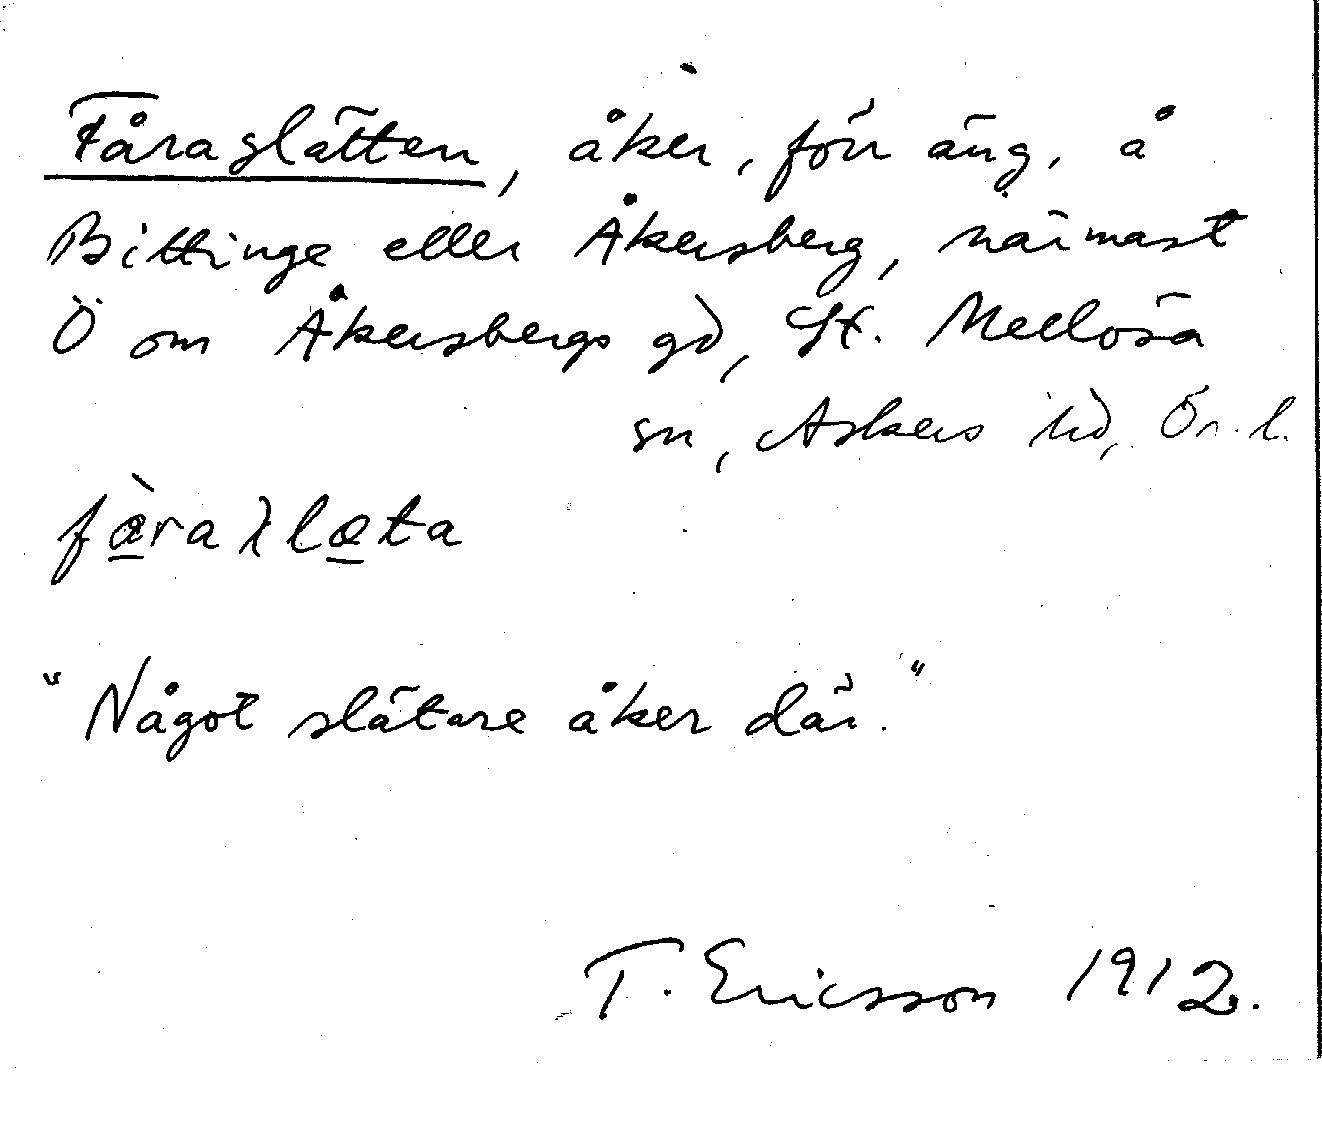 Fåraslätten, åker, förr äng, å
Bittinge eller Åkersberg, närmast
Ö om Åkersbergs gd, St. Mellösa
sn, Askers hd, Ör. l.
fæ̀raslæta
"Något slätare åker där."
T. Ericson 1912.